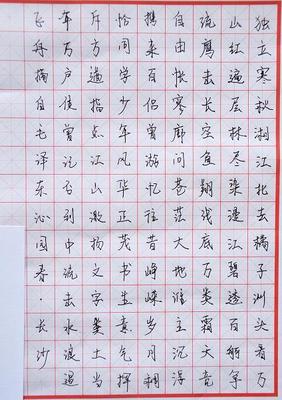 独立寒秋湘江北去橘子洲头看万
山红遍层林尽染漫江碧透百舸争
流鹰击长空鱼翔浅底万类霜天竞
自由怅寥廓问苍茫大地谁主沉浮
携来百侣曾游忆往昔峥嵘岁月稠
恰同学少年风华正茂书生意气挥
斥方遒指点江山激扬文字粪土当
年万户侯曾记否到中流击水浪遏
飞舟摘自毛泽东沁园春·长沙